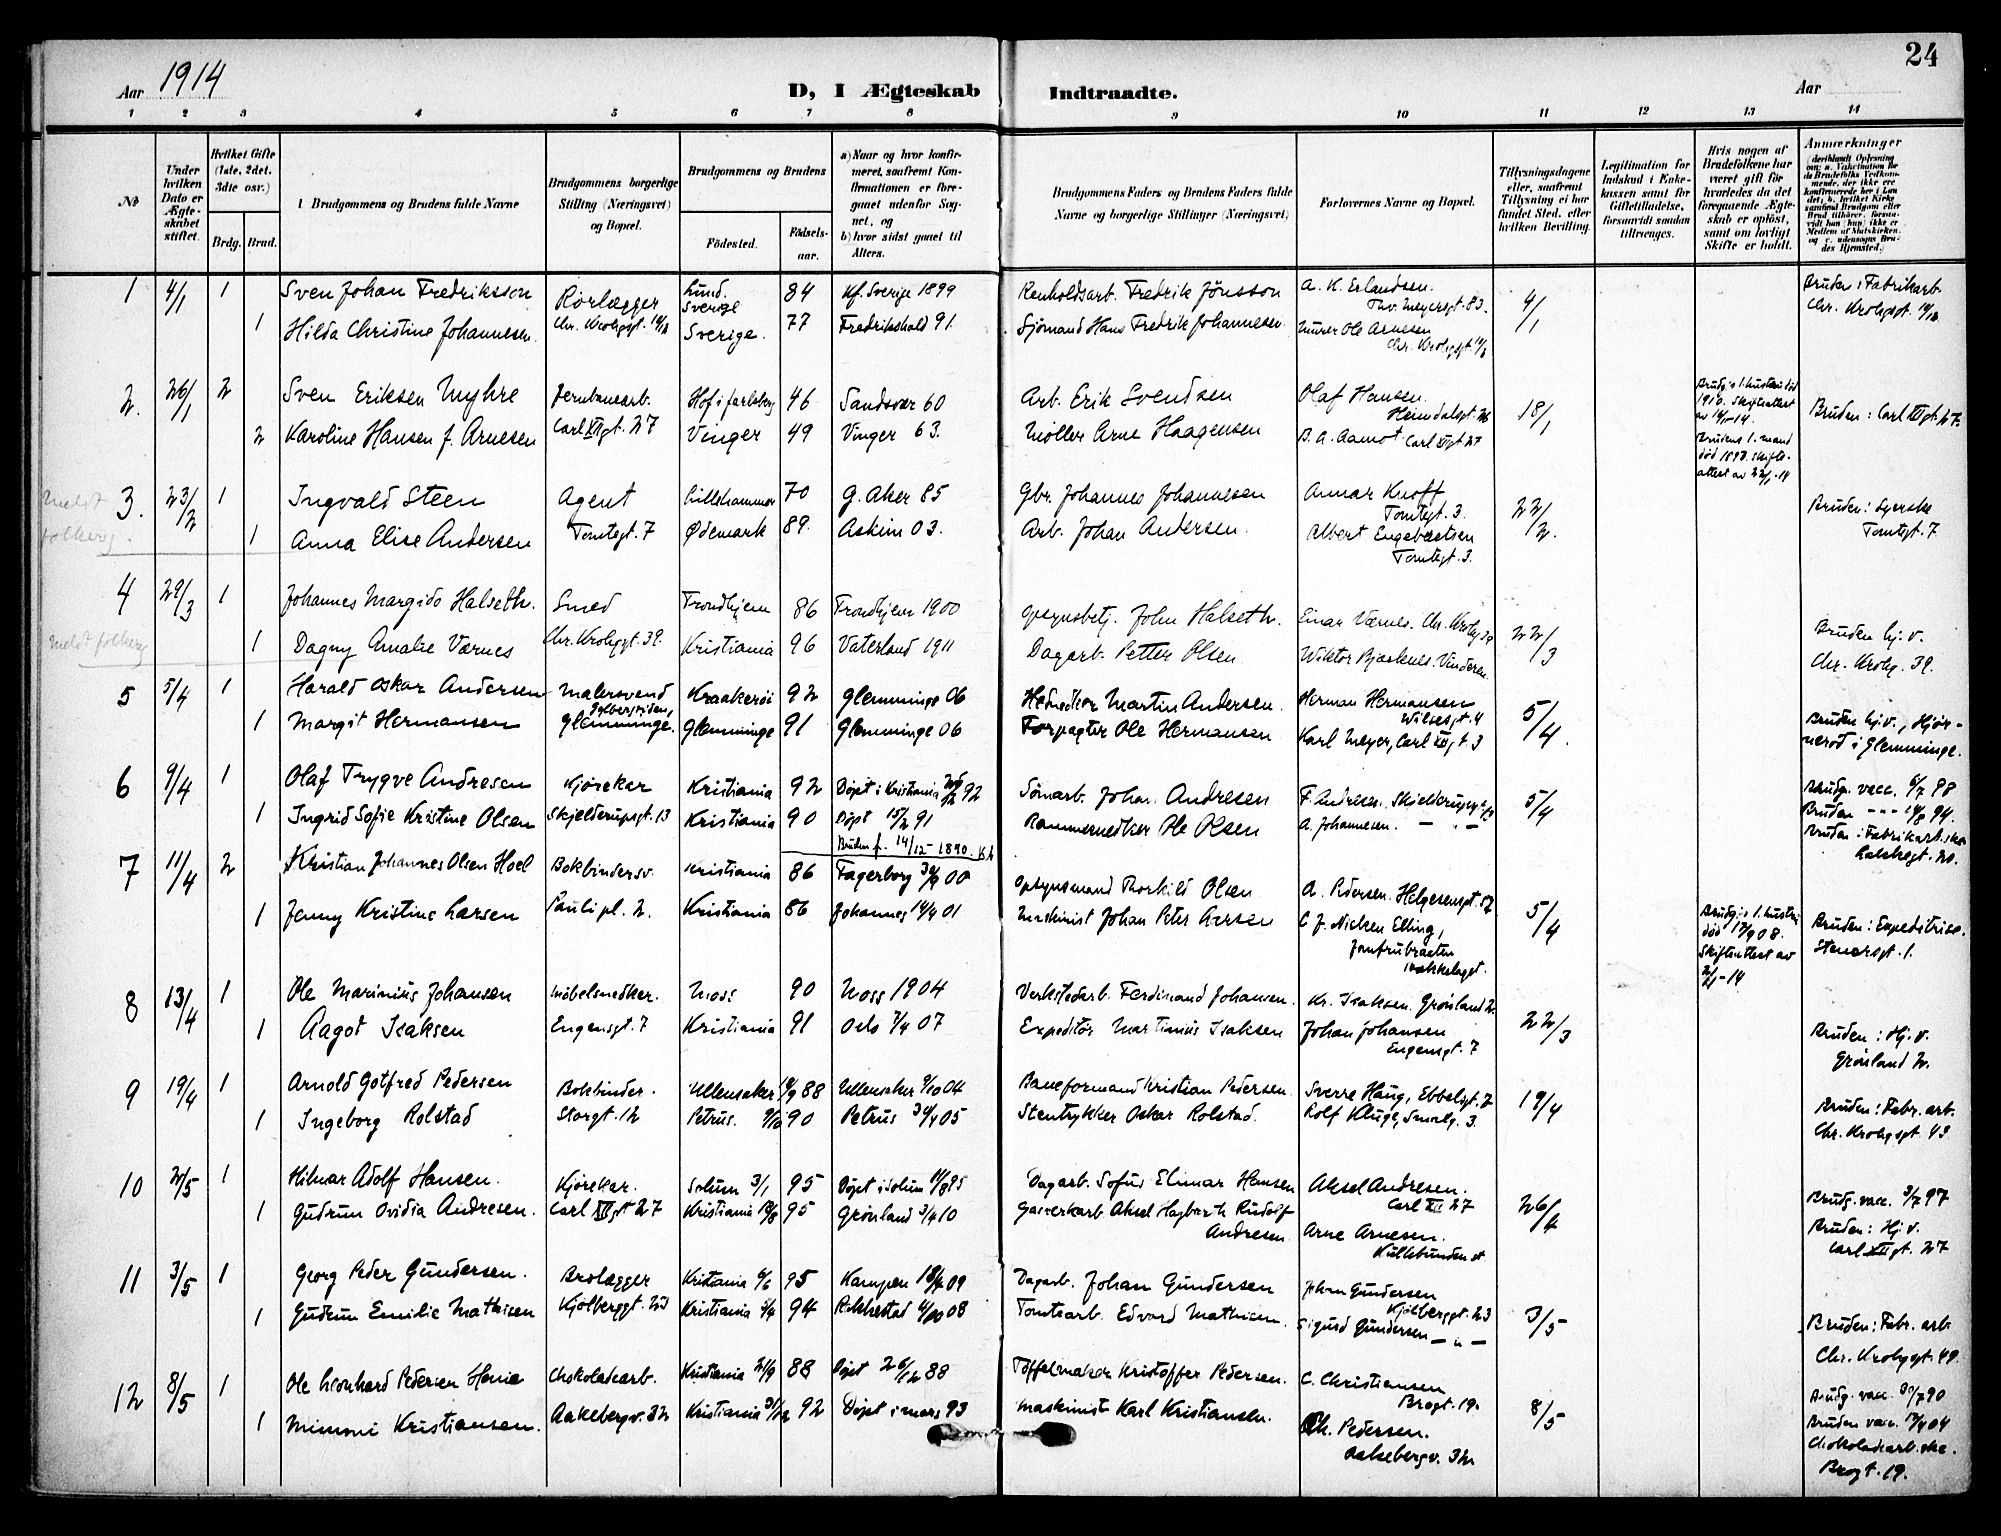 24
Aar 1914
D, I Ægteskab Indtraadte.
Aar
1 2 3 4 5 6 7 8 9 10 11 12 13 14
No
Under hvilken Dato er Ægteskabet stiftet.
Hvilket Gifte (1ste, 2det, 3dte osv.)
Brdg. Brud.
Brudgommens og Brudens fulde Navne
Brudgommens borgerlige Stilling (Næringsvei) og Bopæl.
Brudgommens og Brudens
Födested. Födselsaar.
a) Naar og hvor konfirmeret, saafremt Konfirmationen er foregaaet udenfor Sognet, og
b) hvor sidst gaaet til Alters.
Brudgommens Faders og Brudens Faders fulde Navne og borgerlige Stillinger (Næringsvei)
Forlovernes Navne og Bopæl.
Tillysningsdagene eller, saafremt Tillysning ei har fundet Sted, efter hvilken Bevilling.
Legitimation for Indskud i Enkekassen samt for Giftetilladelse, forsaavidt saadan tiltrænges.
Hvis nogen af Brudefolkene har været gift før hvorledes da det foregaaende Ægteskab er opløst, samt om lovligt Skifte er holdt.
Anmærkninger
1 4/1 1 Sven Johan Fredriksson Rørlægger Lund. Sverige 84 Kf. Sverige 1899 Renholdsarb. Fredrik Jönsson A. K. Erlandsen. Thv. Meyersgt. 83. 4/1 Bruden: Fabrikarb.
1 Hilda Christine Johannesen. Chr. Krohgsgt. Sverige. 77 Fredrikshald 91. Sjömand Hans Fredrik Johannesen Murer Ole Arnesen Chr. Krohgsgt. Chr. Krohgsgt.
2. 26/1 2 Sven Eriksen Myhre Jernbanearb. Hof i Jarlsberg 46 Sandsvær 60 Arb. Erik Svendsen Olaf Hansen. Heimdalsgt. 26 18/1 Brudg.s 1. hustru död 1910. Skifteattest av 14/1-14. Bruden: Carl XIIgt. 27.
2 Karoline Hansen f. Arnesen Carl XIIgt. 27 Vinger 49 Vinger 63. Møller Arne Haagensen B. A. Aamot Carl XIIgt 27 Brudens 1. mand död 1898. Skifteattest av 22/1-14
Meldt folkereg.
3. 23/2 1 Ingvald Steen Agent Lillehammer 70 G. Aker 85 Gbr. Johannes Johannesen Annar Knoff Tomtegt. 3. 22/2. Bruden: Syerske
1 Anna Elise Andersen Tomtegt. 7 Ødemark 89. Askim 03. Arb. Johan Andersen. Albert Engebretsen Tomtegt. 3. Tomtegt. 7
4 29/3 1 Johannes Margido Halseth. Smed Trondhjem 86 Trondhjem 1900 Opsynsbetj. John Halseth. Einar Værnes. Chr. Krohg 39 22/3 Bruden hj. v.
Meldt folkereg
1 Dagny Amalie Værnes Chr. Krohggt. 39. Kristiania 96 Vaterland 1911 Dagarb. Petter Olsen Wiktor Bjerknes. Vinderen Chr. Krohg. 39.
5 5/4 1 Harald Oskar Andersen Malersvend Kraakerøi 92 Glemminge 06 Hednedker Martin Andersen. Herman Hermansen Wilsesgt. 4 5/4. Bruden hj.v., Hjör-
1 Margit Hermansen Glemminge. Glemminge 91 Glemminge 06 Forpagter Ole Hermansen Karl Meyer, Carl XIIgt. 3 nerød i Glemminge.
6 9/4 1 Olaf Trygve Andresen Kjörekar Kristiania 92 Döpt i Kristiania 92 Sömarb. Johan Andresen F. Andresen. Skjelderupsgt. 13 5/4 Brudg. vacc. 6/7 98
1 Ingrid Sofie Kristine Olsen Skjelderupsgt. 13 Kristiania 90 Döpt 15/2 91 Rammesnedker Ole Olsen A. Johannesen. — „ — Bruden --- 94.
Bruden f. 14/12-1890. Bruden: Fabrikarb.ske
7 11/4 2 Kristian Johannes Olsen Hoel Bokbindersv. Kristiania 86 Fagerborg 00 Opsynsmand Thorkild Olsen A. Pedersen. Helgesensgt. 12
1 Jenny Kristine Larsen Paulipl. 2. Kristiania 86 Johannes 14/4 01 Maskinist Johan Peter Larsen C. J. Nielsen Elling, Jomfrubraaten Bækkelaget. 5/4 Brudg.s 1. hustru död 08. Skifteattest av 2/1-14 Bruden: Expeditrise. Stenersgt. 1.
8 13/4 1 Ole Marinius Johansen Møbelsnedker. Moss 90 Moss 1904 Verkstedarb. Ferdinand Johansen. Kr. Isaksen. Grønland 2. 22/3
1 Aagot Isaksen Engensgt. 7 Kristiania 91 Oslo 7/4 07 Expeditör Martinius Isaksen Johan Johansen Engensgt. 7 Bruden: Hj. v. Grönland 2.
9 19/4 1 Arnold Gotfred Pedersen Bokbinder. Ullensaker 88 Ullensaker 9/10 04 Baneformand Kristian Pedersen. Sverre Haug, Ebbelsgt. 7 19/4 Bruden: Fabr. arb.
1 Ingeborg Rolstad Storgt. 12 Petrus. 9/10 90 Petrus 05 Stentrykker Oskar Rolstad. Rolf Kluge, Smalg. 3. Chr. Krohgsgt. 43
10 2/5 1 Hilmar Adolf Hansen. Kjörekar. Solum 3/1 95 Döpt i Solum 95 Dagarb. Sofus Elimar Hansen Aksel Andresen. Carl XII 27 26/4 Brudg. vacc. 3/7 97
1 Gudrun Ovidia Andresen. Carl XIIgt 27 Kristiania 95 Grönland 3/4 10 Gasverkarb Aksel Hagbarth Rudolf Andresen Arne Arnesen. Kullebunden st Bruden: Hj. v. Carl XIIgt. 27
11 3/5 1 Georg Peder Gundersen. Brolægger Kristiania 6/6 95 Kampen 09 Dagarb. Johan Gundersen Johan Gundersen Kjölberggt. 23 3/5
1 Gudrun Emilie Mathisen Kjölberggt. 23 Kristiania 94 Rakkestad 08 Tomtearb. Edvard Mathisen. Sigurd Gundersen — „ — Bruden: Fabr. arb Chr. Krohgsgt. 49.
12 8/5 1 Ole Leonhard Pedersen Henie Chokoladearb. Kristiania 21/9 88 Döpt 26/12 88 Töffelmaker Kristoffer Pedersen. C. Christiansen Brogt. 19. 8/5 Brudg. vacc. 90
1 Mimmi Kristiansen. Aakebergv. 32 Kristiania 92 Döpt i mars 93 Maskinist Karl Kristiansen. Ch. Pedersen. Aakebergv. 32 Bruden vacc. 04
Chokoladearb.ske.
Brogt. 19.